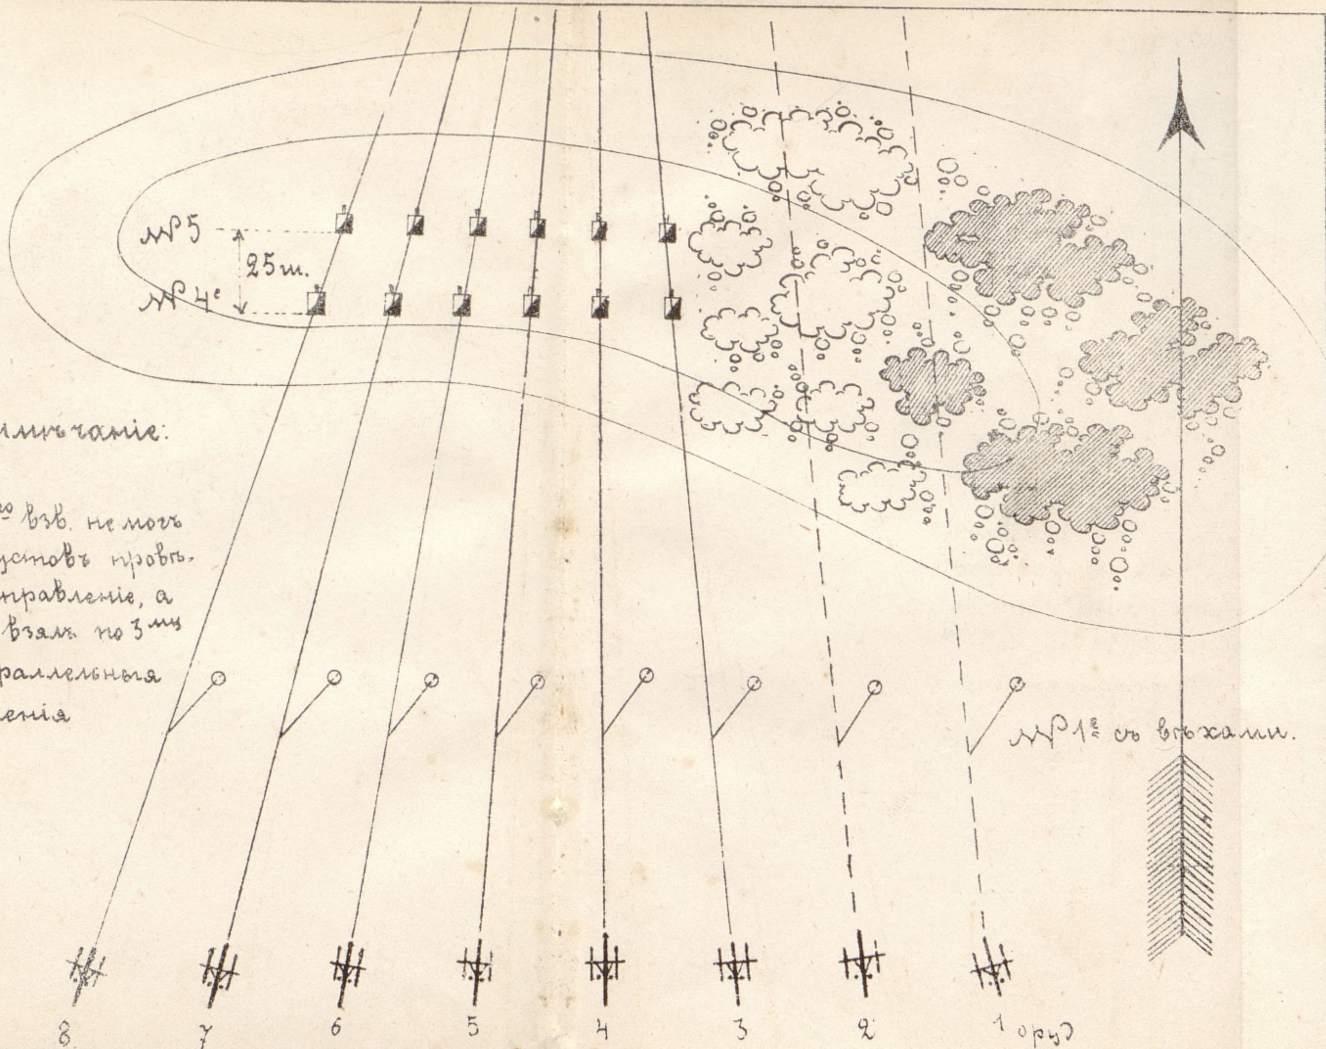 № 5
25 ш.
№ 4е
имѣчаніе:
го взв. не могъ
устовъ провѣ-
направленіе, а
взялъ по 3му
раллельныя
енія
№ 1е съ вѣхами.
8 7 6 5 4 3 2 1 оруд